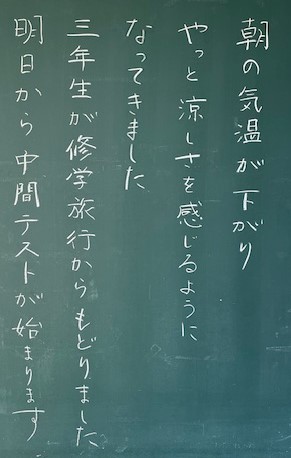 朝の気温が下がり
やっと涼しさを感じるように
なってきました
三年生が修学旅行からもどりました
明日から中間テストが始まります